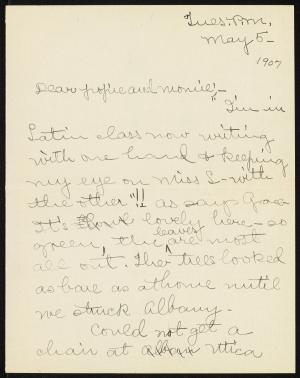 Tues. P.M.
May 5-
1907
Dear popsie and momsie,-
"I'm in
Latin class now writing
with one hand & keeping
my eye on Miss L- with
the other"!! as says Grace
It's lovely here - so
green, the leaves are most
all out. The trees looked
as bare as at home until
we struck Albany.
Could not get a
chair at Utica